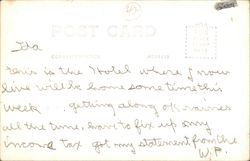 POST CARD
Ida
CORRESPONDENCE ADDRESS
this is the Hotel where I now
live will be home some time this
week... getting along ok raines
all the time, have to fix up my
income tax got my statement from the
W.P.